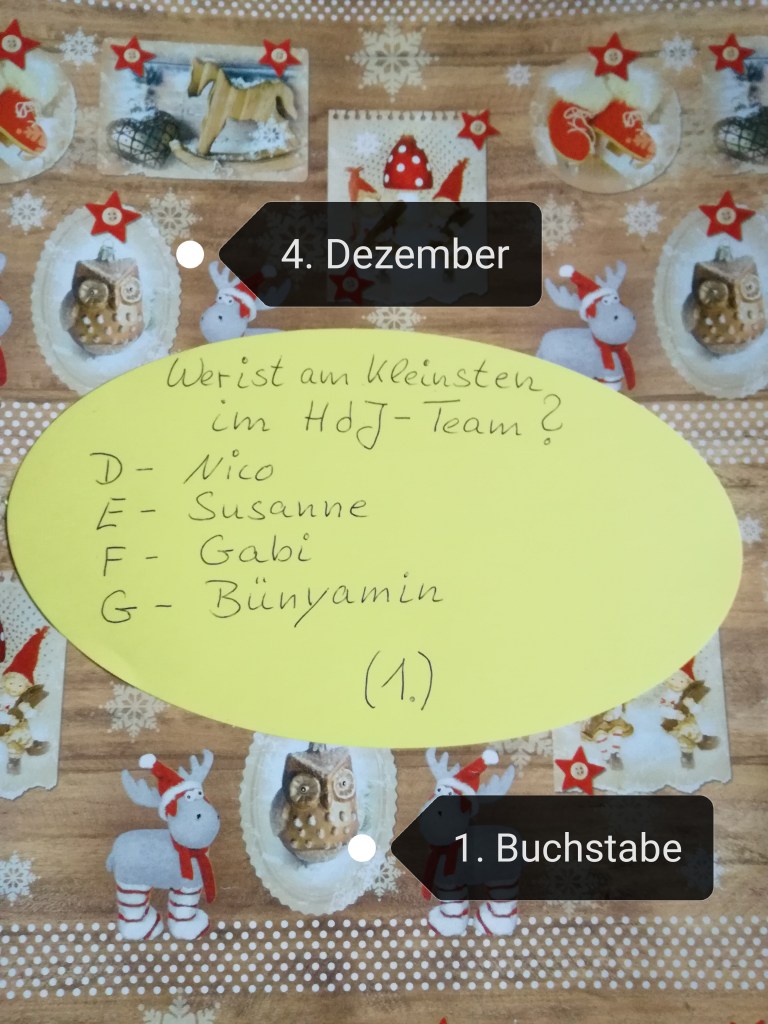 4. Dezember
Wer ist am Kleinsten
im HdJ-Team?
D - Nico
E - Susanne
F - Gabi
G - Bünyamin
(1.)
1. Buchstabe